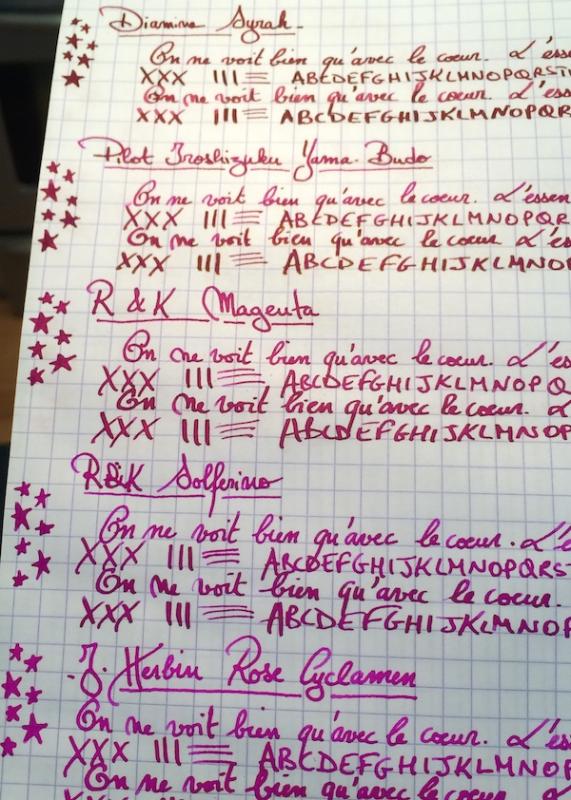 Diamine Syrah
On ne voit bien qu'avec le coeur. L'esse
XXX III ABCDEFGHIJKLMNOPQRST
On ne voit bien qu'avec le coeur. L'ess
XXX III ABCDEFGHIJKLMNOPQR
Pilot Iroshizuku Yama-Budo
On ne voit bien qu'avec le coeur. L'essen
XXX III ABCDEFGHIJKLMNOPQR
On ne voit bien qu'avec le coeur L'es
XXX III ABCDEFGHIJKLMNO
R & K Magenta
On ne voit bien qu'avec le coeur. L'es
XXX III ABCDEFGHIJKLMNOPQ
On ne voit bien qu'avec le coeur. L
XXX III ABCDEFGHIJKLMNOP
R&K Solferino
On ne voit bien qu'avec le coeur. L'e
XXX III ABCDEFGHIJKLMNOPQRS
On ne voit bien qu'avec le coeur.
XXX III ABCDEFGHIJKLMNOP
J. Herbin Rose Cyclamen
On ne voit bien qu'avec le coeur. L'es
XXX III ABCDEFGHIJKLMNOP
On ne voit bien qu'avec le coeur.